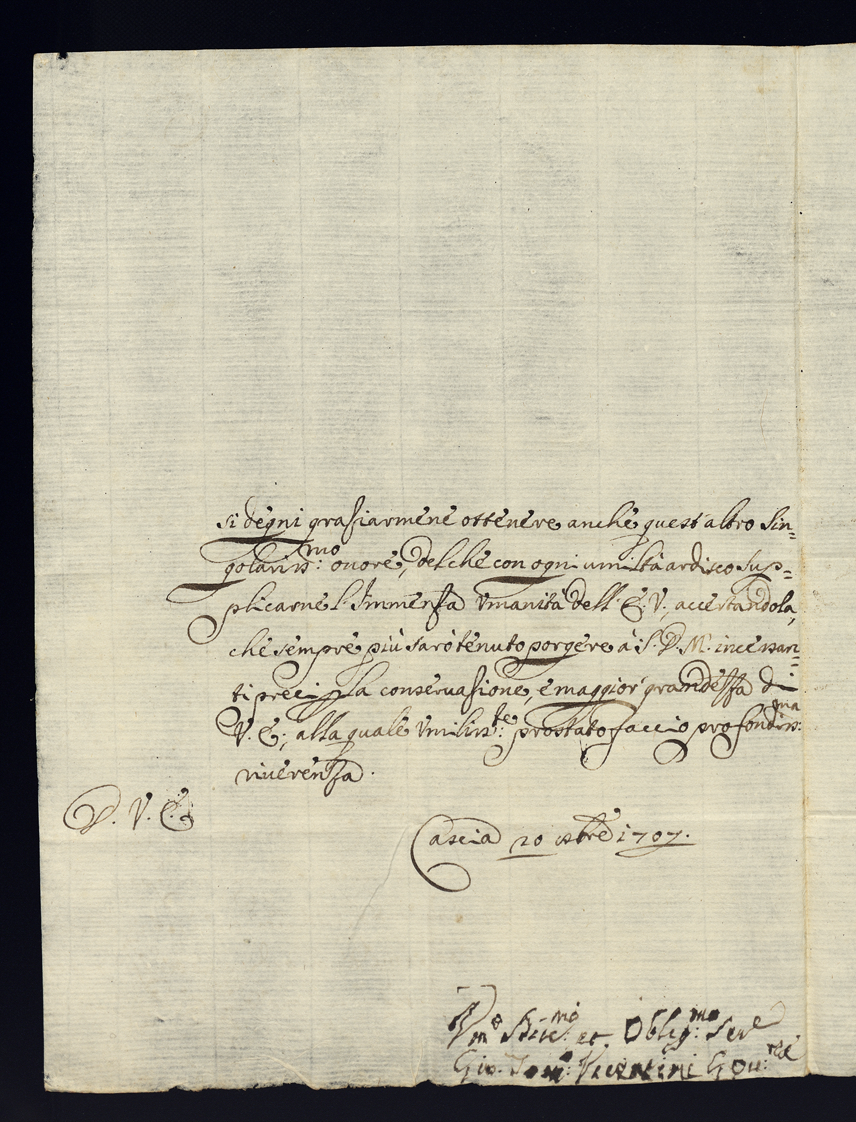 si degni grasiarmene ottenere anche quest'altro sin=
golariss:mo onore, del che con ogni umiltà ardisco sup=
plicarne l'Immensa Umanità dell'E.V., accertandola,
che sempre più sarò tenuto porgere a S.D.M. incessan=
ti preci p la conservasione, e maggior grandessa di
V.E., alla quale umiliss:te prostrato faccio profondiss:ma
riverensa.
D. V. E.
Cascia 20 8bre 1707.
Um:o Div:mo et Oblig:mo Ser.e
Gio. Vicentini Gov:re